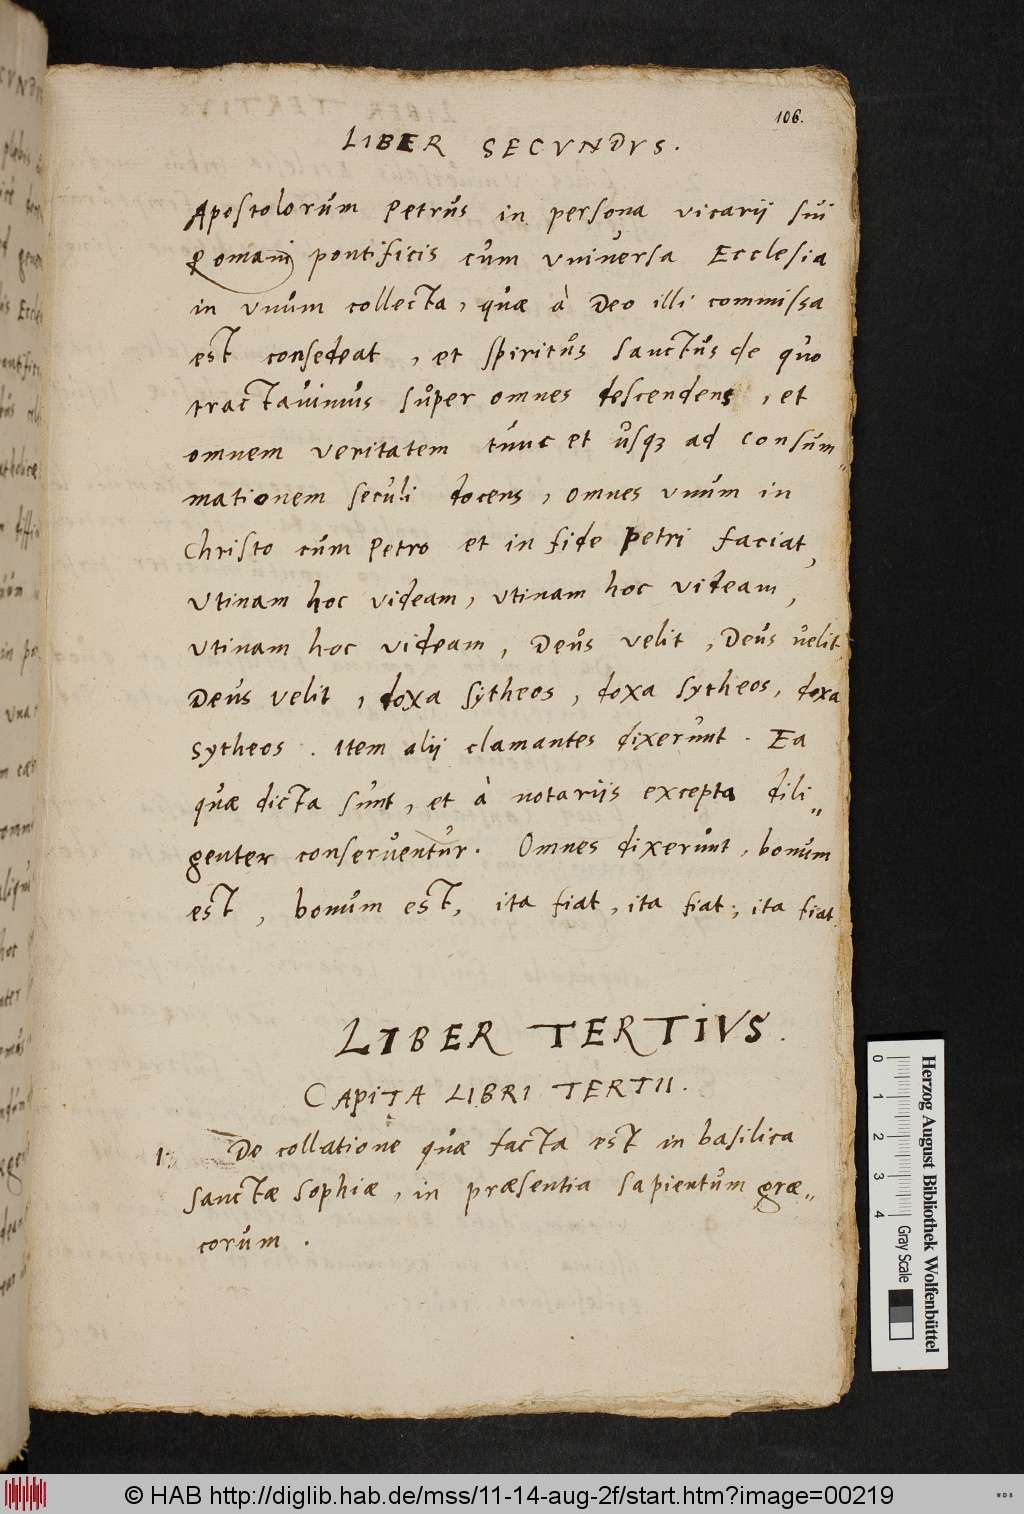 106.
LIBER SECVNDVS.
Apostolorum Petrus in persona vicarii sui
Romani pontificis cum vniversa Ecclesia
in vnum collecta, quæ à Deo illi commissa
est consedeat, et spiritus sanctus de quo
tractavimus super omnes descendens, et
omnem veritatem tunc et usqꝫ ad consum„
mationem seculi docens, omnes vnum in
Christo cum Petro et in fide Petri faciat,
Vtinam hoc videam, vtinam hoc videam,
vtinam hoc videam, Deus velit, Deus velit
Deus velit, doxa sytheos, doxa sytheos, doxa
sytheos. Item alii clamantes dixerunt. Ea
quæ dicta sunt, et à notariis excepta dili„
genter conserventur. Omnes dixerunt, bonum
est, bonum est, ita fiat, ita fiat, ita fiat.
LIBER TERTIVS.
CAPITA LIBRI TERTII.
1. De collatione quæ facta est in basilica
sanctæ Sophiæ, in præsentia sapientum græ„
corum.
0 1 2 3 4
Gray Scale
Herzog August Bibliothek Wolfenbüttel
© HAB http://diglib.hab.de/mss/11-14-aug-2f/start.htm?image=00219